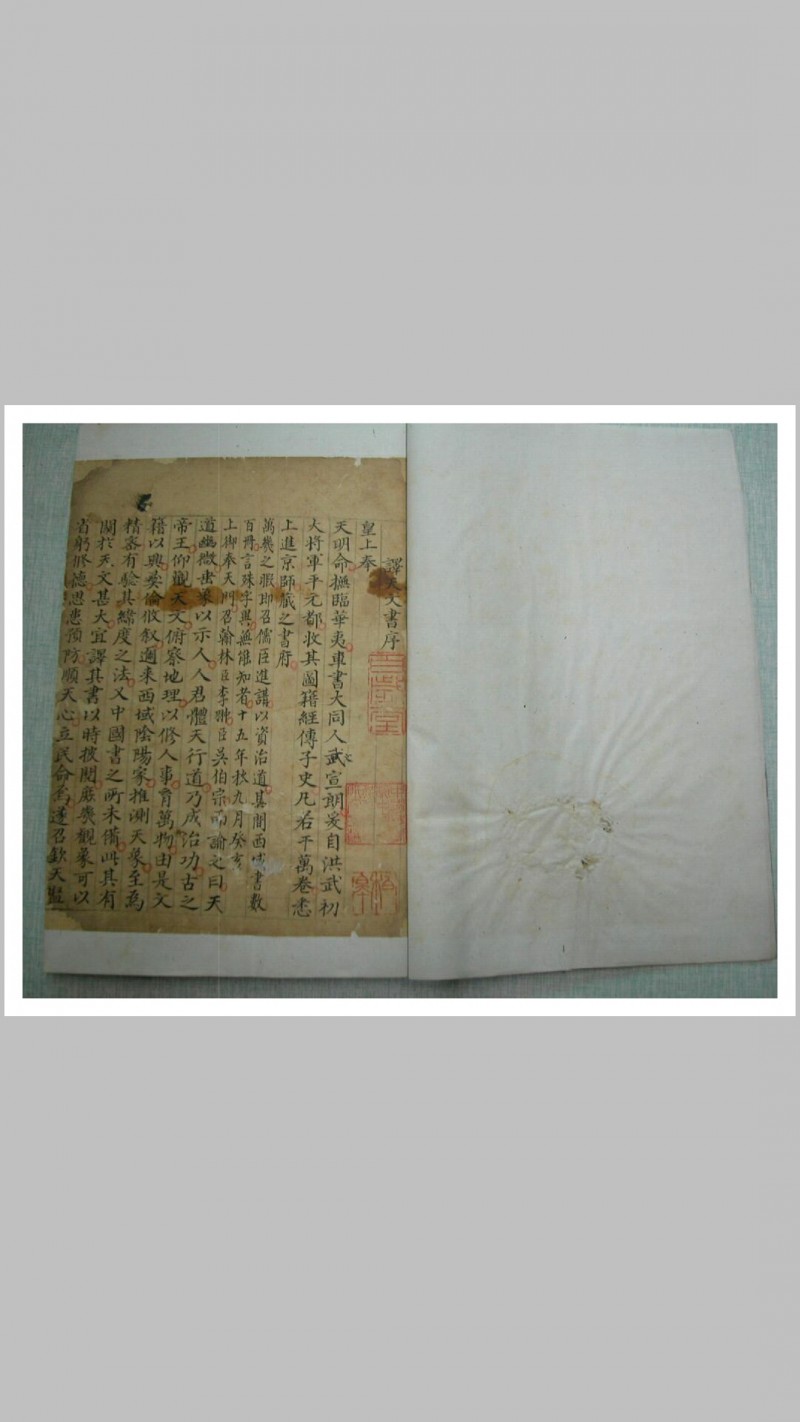 譯天文書序
皇上奉
天明命撫臨華夷車書大同人文宣朗爰自洪武初
大將軍平元都收其圖籍經傳子史凡若干萬卷悉
上進京師藏之書府
萬幾之暇即召儒臣進講以資治道其間西域書數
百冊言殊字異無能知者十五年秋九月癸亥
上御奉天門召翰林臣李翀臣吳伯宗而諭之曰天
道幽微垂象以示人人君體天行道乃成治功古之
帝王仰觀天文俯察地理以修人事育萬物由是文
籍以興彝倫攸敘邇來西域陰陽家推測天象至爲
精密有驗其緯度之法又中國書之所未備此其有
關於天文甚大宜譯其書以時披閱庶幾觀象可以
省躬修德思患預防順天心立民命焉遂召欽天監